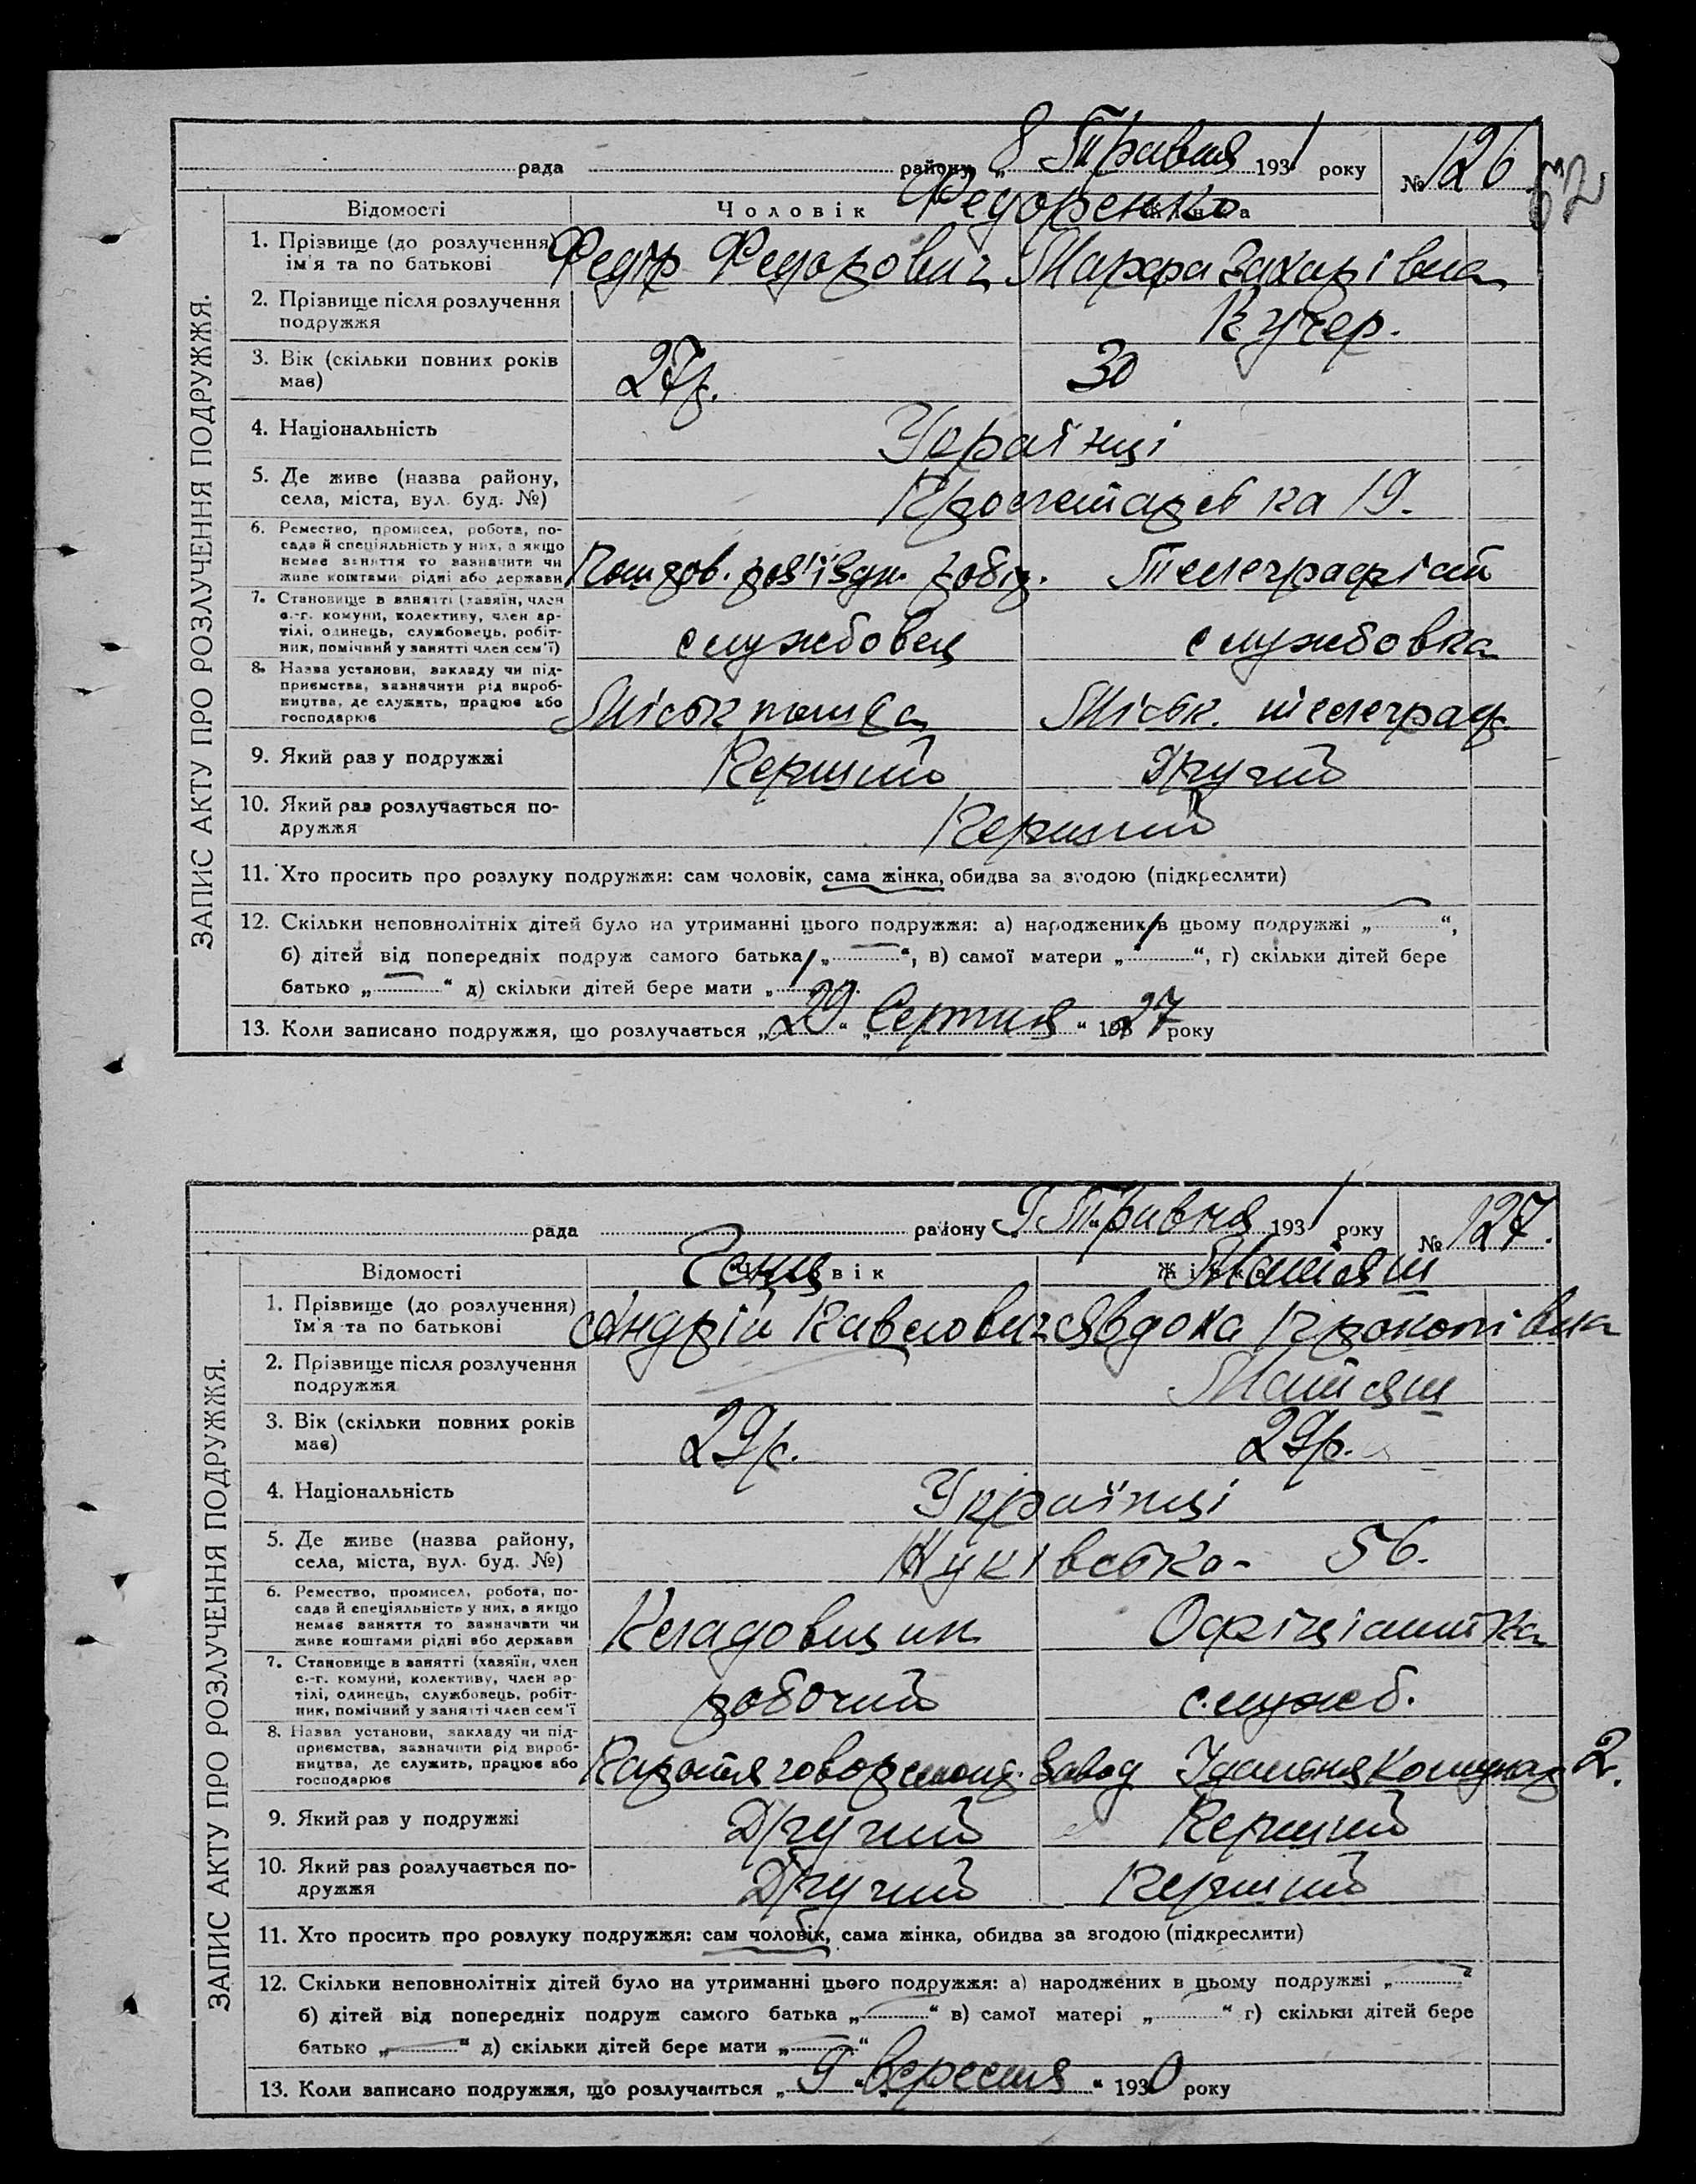 рада району „ 8 Травня 1931 року № 126
62
ЗАПИС АКТУ ПРО РОЗЛУЧЕННЯ ПОДРУЖЖЯ.
Відомості Чоловік Жінка
Федоренко
1. Прізвище (до розлучення)
ім'я та по батькові
Федір Федорович Марфа Захарівна
2. Прізвище після розлучення
подружжя
Кучер.
3. Вік (скільки повних років
має)
27р. 30
4. Національність
Українці
5. Де живе (назва району,
села, міста, вул. буд. №)
Пролетарська 19.
6. Ремество, промисел, робота, по-
сада й спеціяльність у них, а якщо
немає заняття то зазначити чи
живе коштами рідні або держави
Поштов. роз'їздн. робіт. Телеграфіст
7. Становище в занятті (хазяїн, член
с.-г. комуни, колективу, член ар-
тілі, одинець, службовець, робіт-
ник, помічний у занятті член сем'ї)
службовец службовка
8. Назва установи, закладу чи під-
приємства, зазначити рід вироб-
ництва, де служить, працює або
господарює
Міськ пошта Міськ. телеграф.
9. Який раз у подружжі
Перший Другий
10. Який раз розлучається по-
дружжя
Перший
11. Хто просить про розлуку подружжя: сам чоловік, сама жінка, обидва за згодою (підкреслити)
12. Скільки неповнолітніх дітей було на утриманні цього подружжя: а) народжених в цьому подружжі „ “,
б) дітей від попередніх подруж самого батька „ “, в) самої матери „ “, г) скільки дітей бере
батько „ “ д) скільки дітей бере мати „ “.
13. Коли записано подружжя, що розлучається „29“ „Серпня“ 1927 року
рада району „9 Травня 1931 року № 127.
ЗАПИС АКТУ ПРО РОЗЛУЧЕННЯ ПОДРУЖЖЯ.
Відомості Чоловік Жінка
Матяш
1. Прізвище (до розлучення)
ім'я та по батькові
Андрій Павлович Явдоха Прокопівна
2. Прізвище після розлучення
подружжя
Матяш
3. Вік (скільки повних років
має)
29р. 29р.
4. Національність
Українці
5. Де живе (назва району,
села, міста, вул. буд. №)
56.
6. Ремество, промисел, робота, по-
сада й спеціяльність у них, а якщо
немає заняття то зазначити чи
живе коштами рідні або держави
Кладовщик Офіціантка
7. Становище в занятті (хазяїн, член
с.-г. комуни, колективу, член ар-
тілі, одинець, службовець, робіт-
ник, помічний у занятті член сем'ї
робочий служб.
8. Назва установи, закладу чи під-
приємства, зазначити рід вироб-
ництва, де служить, працює або
господарює
завод Їдальня 2.
9. Який раз у подружжі
Другий Перший
10. Який раз розлучається по-
дружжя
Другий Перший
11. Хто просить про розлуку подружжя: сам чоловік, сама жінка, обидва за згодою (підкреслити)
12. Скільки неповнолітніх дітей було на утриманні цього подружжя: а) народжених в цьому подружжі „ “
б) дітей від попередніх подруж самого батька „ “ в) самої матері „ “ г) скільки дітей бере
батько „ “ д) скільки дітей бере мати „ “
13. Коли записано подружжя, що розлучається „9“ „вересня“ 1930 року